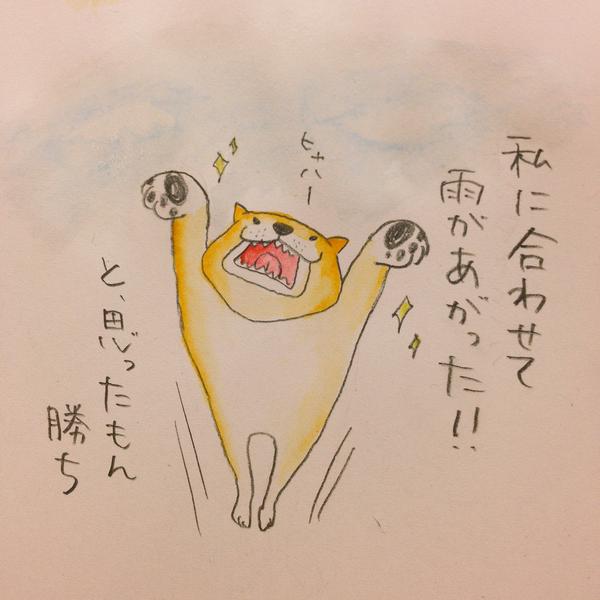 私に合わせて
雨があがった!!
ヒャハー
と、思ったもん
勝ち